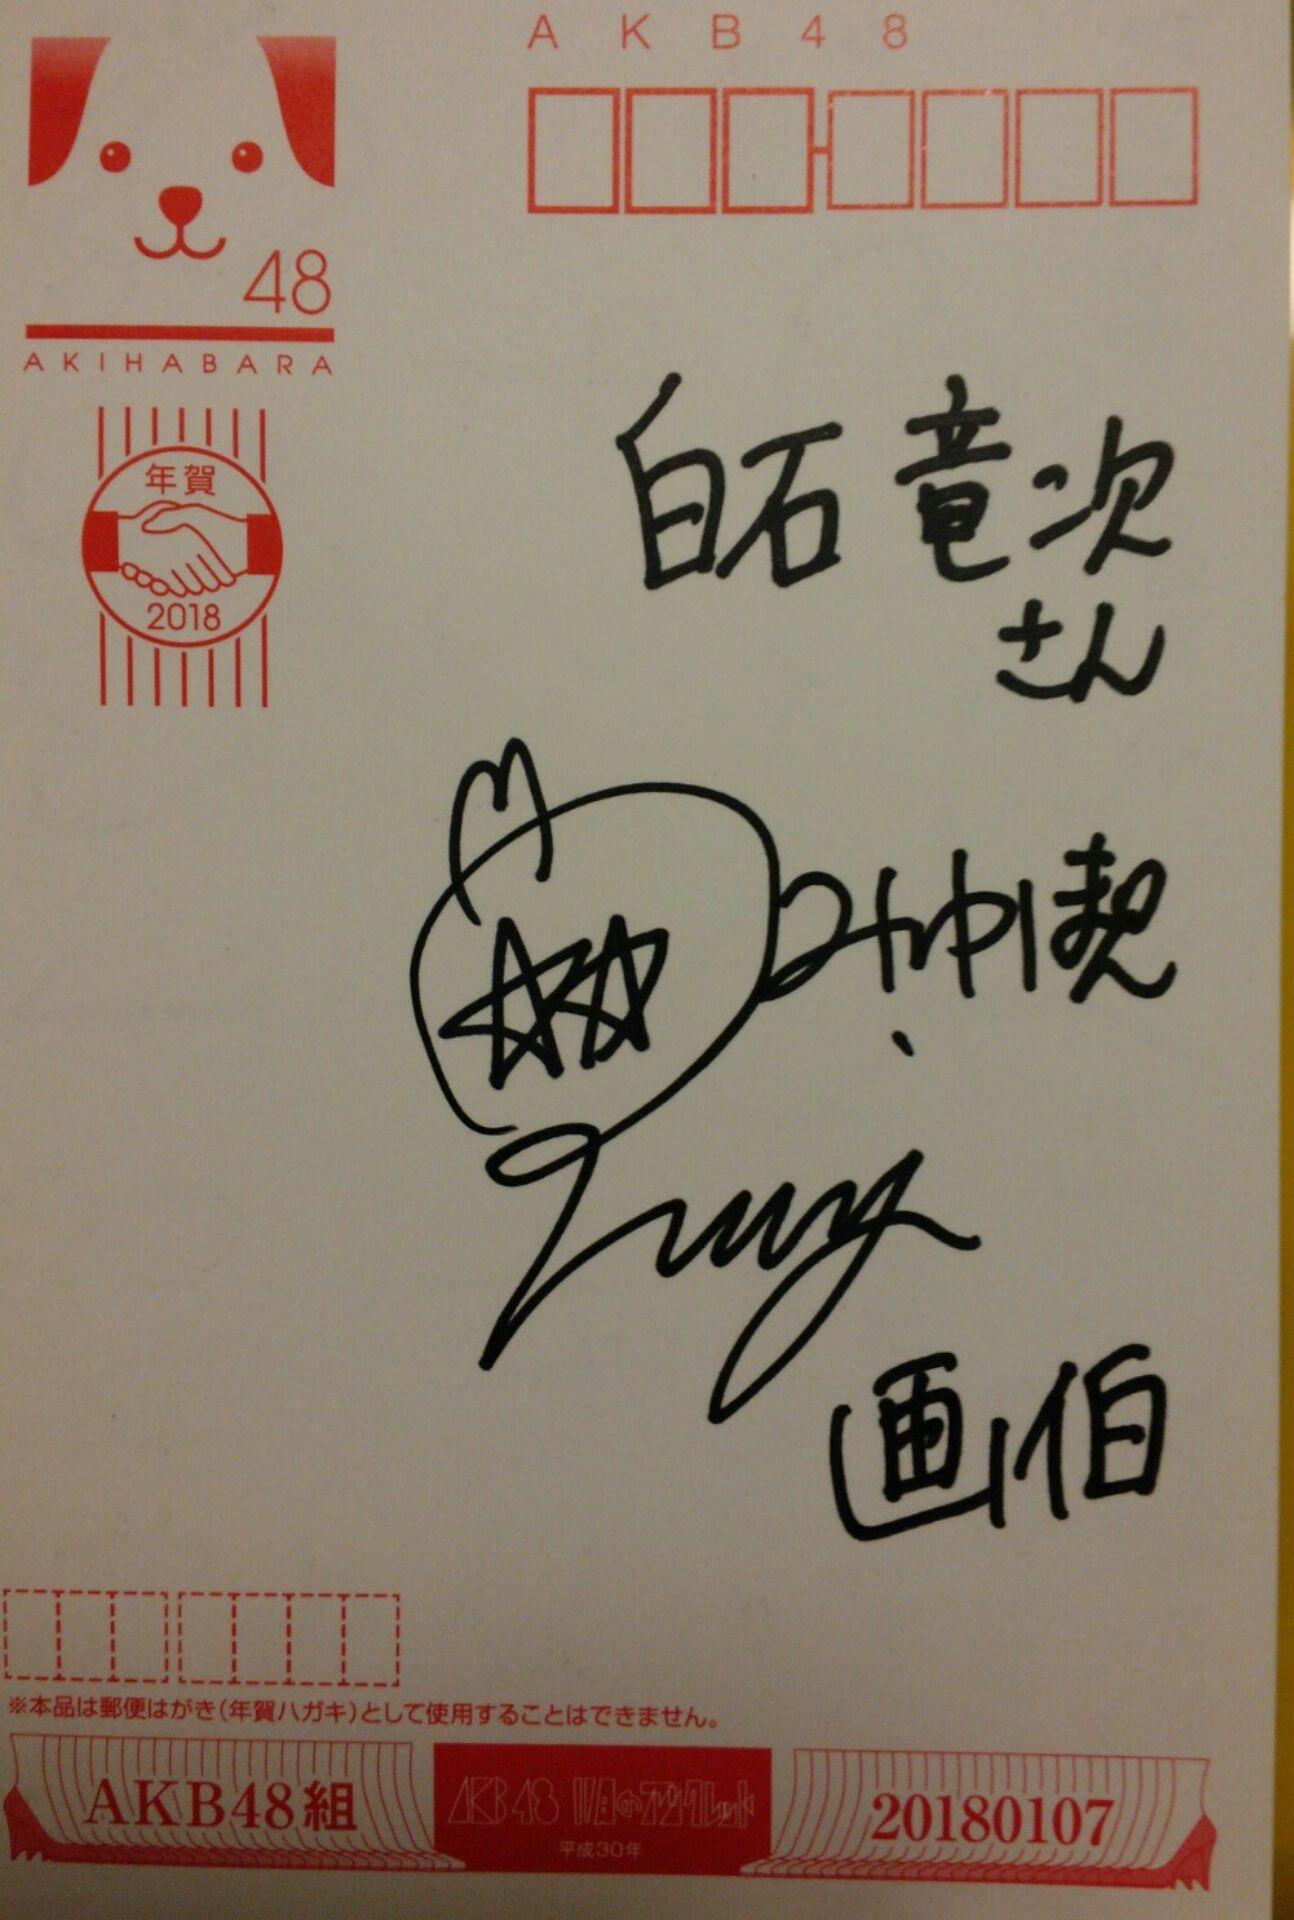 AKB48
48
AKIHABARA
年賀
2018
白石竜次
さん
画伯
※本品は郵便はがき(年賀ハガキ)として使用することはできません。
AKB48組
AKB48 11月のアンクレット
平成30年
20180107